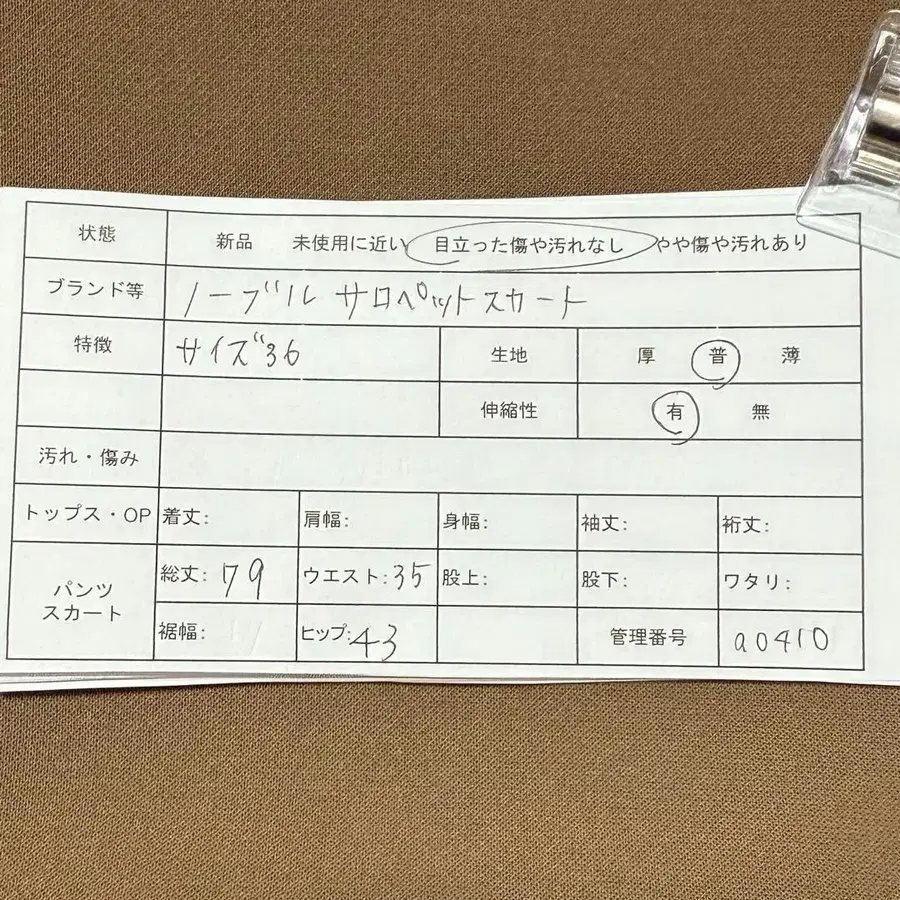 状態 新品 未使用に近い 目立った傷や汚れなし やや傷や汚れあり
ブランド等 ノーブル サロペットスカート
特徴 サイズ36 生地 厚 普 薄
伸縮性 有 無
汚れ・傷み
トップス・OP 着丈: 肩幅: 身幅: 袖丈: 裄丈:
パンツ スカート 総丈: 79 ウエスト: 35 股上: 股下: ワタリ:
裾幅: ヒップ: 43 管理番号 a0410